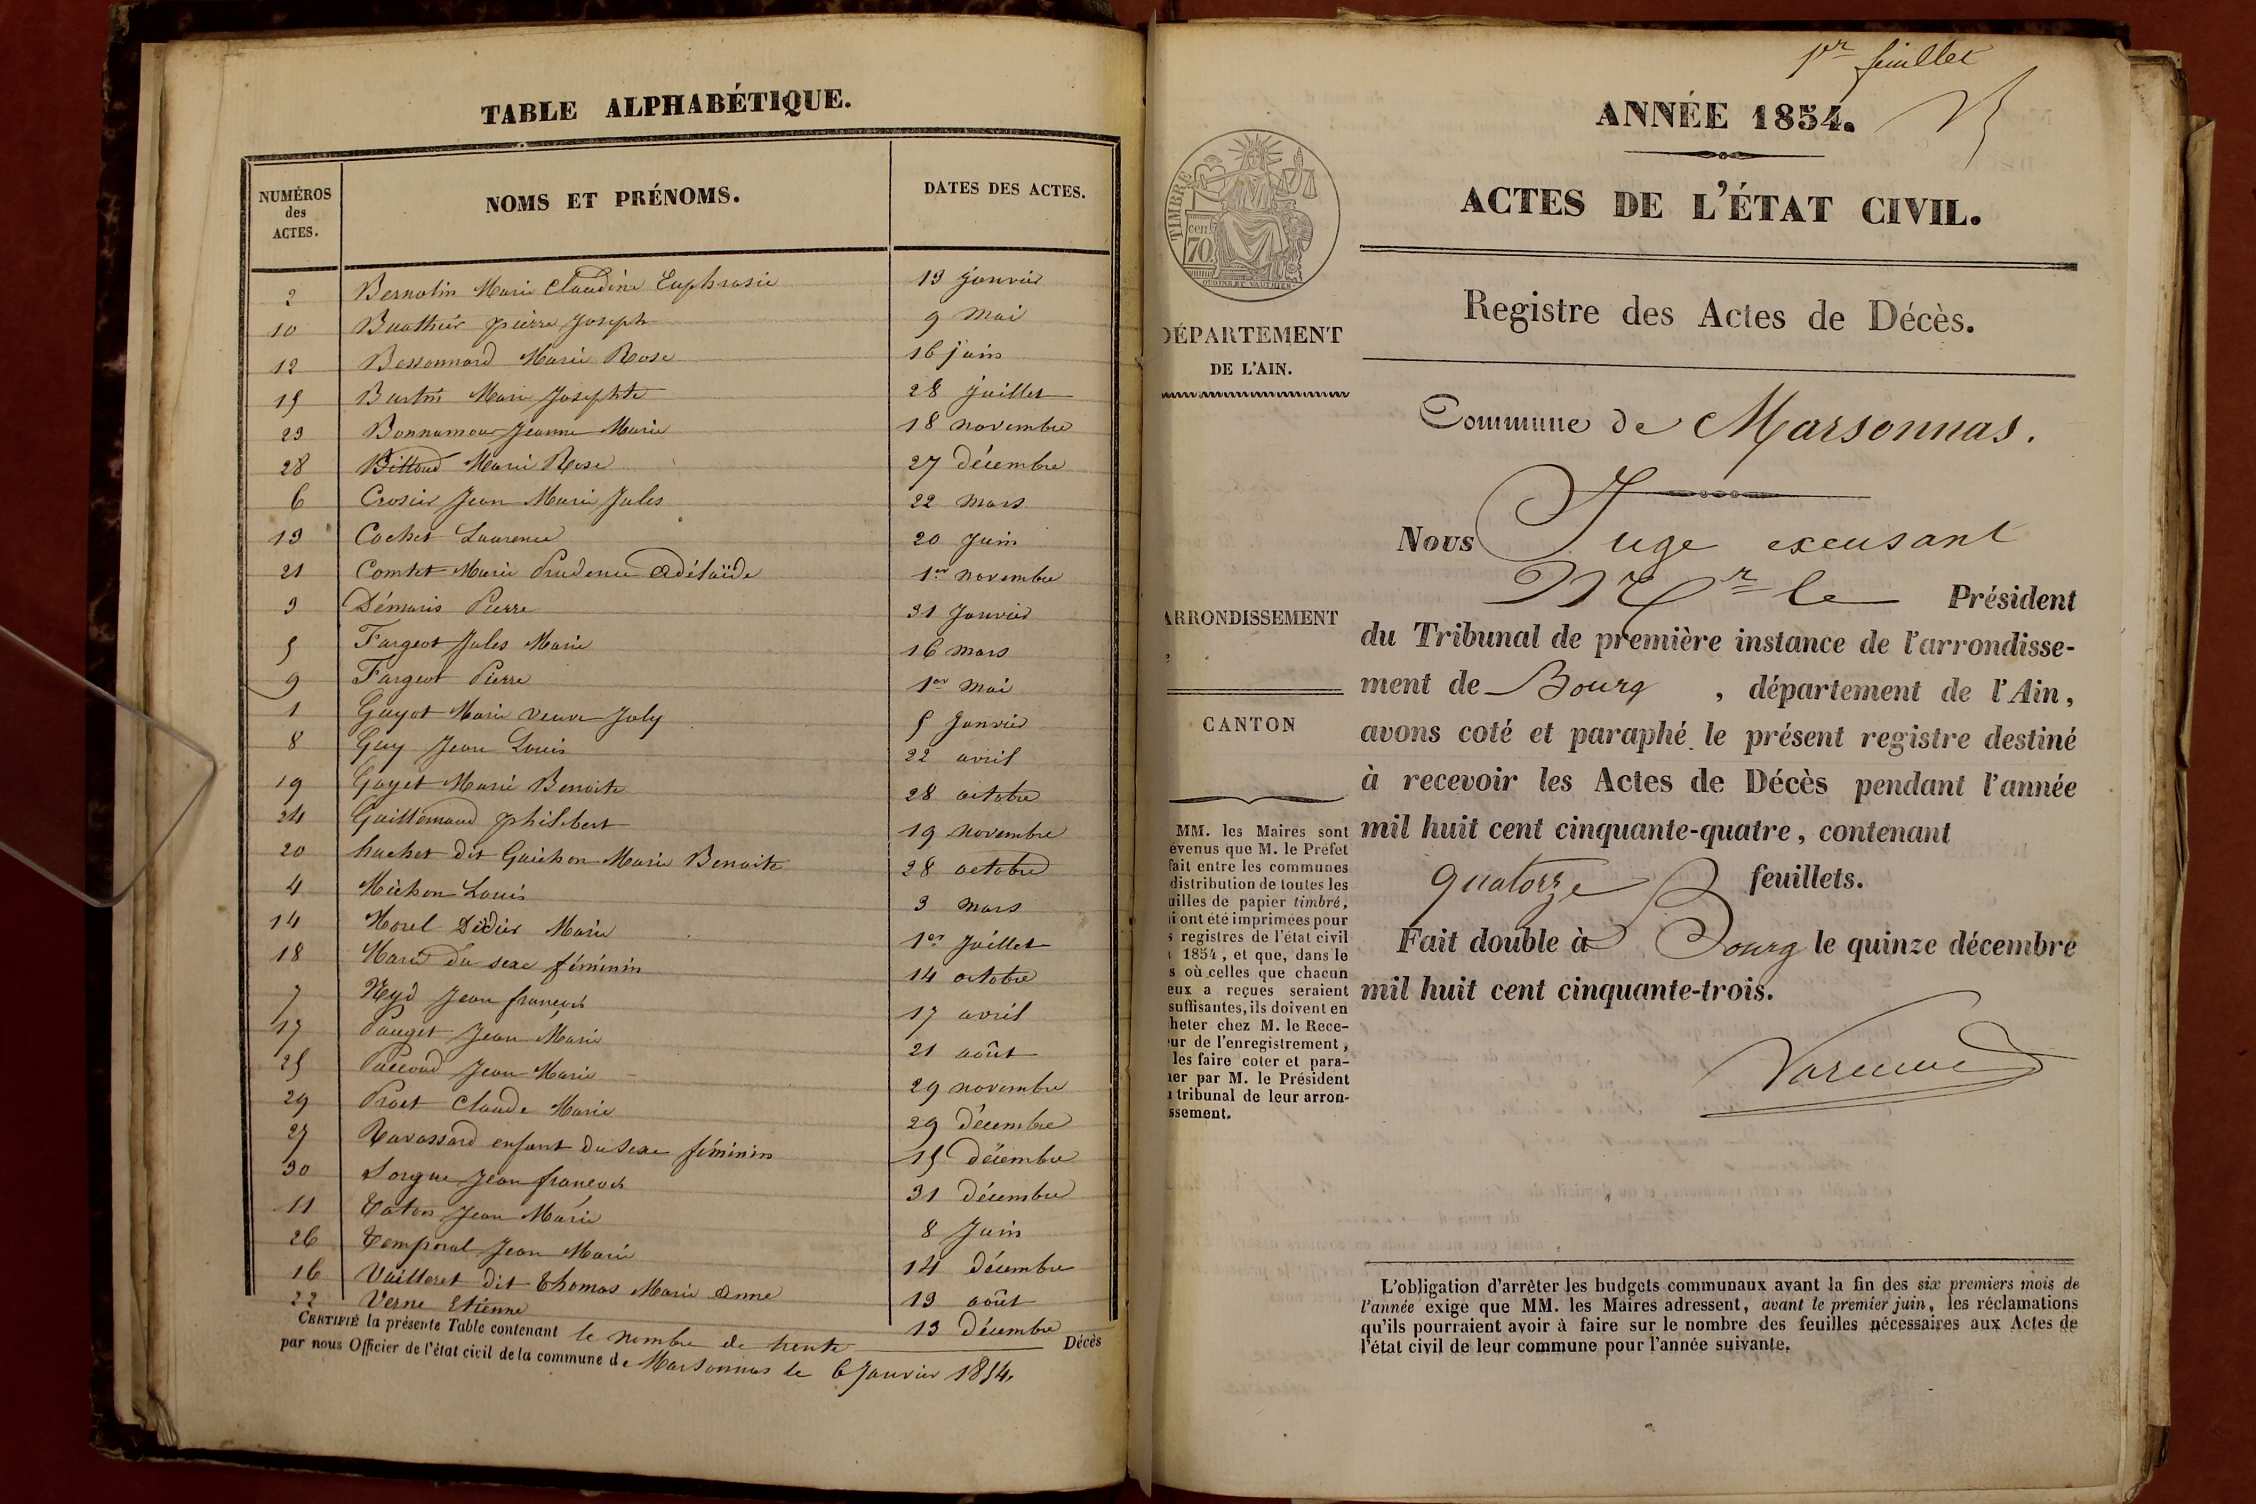 TABLE ALPHABÉTIQUE.
NUMÉROS
des
ACTES.
NOMS ET PRÉNOMS.
DATES DES ACTES.
2 Bernolin Marie Claudine Euphrasie 13 janvier
10 Buathier pierre Joseph 9 mai
12 Bessonnard Marie Rose 16 juin
15 Marie Josephte 28 juillet
23 Bonnamour Jeanne Marie 18 novembre
28 Bittoud Marie Rose 27 décembre
6 Crosier Jean Marie Jules 22 mars
13 Cochet Laurence 20 Juin
21 Comtet Marie Prudence Adélaïde 1er novembre
3 Démaris Pierre 31 Janvier
5 Fargeot Jules Marie 16 mars
9 Fargeot Pierre 1er mai
1 Guyot Marie veuve Joly 5 Janvier
8 Guy Jean Louis 22 avril
19 Goyet Marie Benoite 28 octobre
24 Guillemaud philibert 19 novembre
20 huchet dit Guichon Marie Benoite 28 octobre
4 Michon Louis 3 mars
14 Morel Didier Marie 1er Juillet
18 du sexe féminin 14 octobre
7 Jean françois 17 avril
17 Pauget Jean Marie 21 août
25 Paccoud Jean Marie 29 novembre
29 Prost Claude Marie 29 décembre
27 Ravassard enfant du sexe féminin 15 décembre
30 Sorgue Jean françois 31 décembre
11 Taton Jean Marie 8 Juin
26 Temporal Jean Marie 14 décembre
16 Vailleret dit Thomas Marie Anne 13 août
22 Verne Etienne 13 décembre
CERTIFIÉ la présente Table contenant le nombre de trente Décès
par nous Officier de l'état civil de la commune de Marsonnas le 6 Janvier 1854.
1er feuillet
ANNÉE 1854.
ACTES DE L'ÉTAT CIVIL.
TIMBRE
cen.
70
Registre des Actes de Décès.
DÉPARTEMENT
DE L'AIN.
Commune de Marsonnas.
Nous Juge excusant
Mr le Président
du Tribunal de première instance de l'arrondisse-
ment de Bourg , département de l'Ain,
avons coté et paraphé le présent registre destiné
à recevoir les Actes de Décès pendant l'année
mil huit cent cinquante-quatre, contenant
quatorze feuillets.
Fait double à Bourg le quinze décembre
mil huit cent cinquante-trois.
ARRONDISSEMENT
CANTON
MM. les Maires sont
évenus que M. le Préfet
fait entre les communes
distribution de toutes les
uilles de papier timbré,
i ont été imprimées pour
s registres de l'état civil
1854, et que, dans le
s où celles que chacun
eux a reçues seraient
suffisantes, ils doivent en
heter chez M. le Rece-
ur de l'enregistrement,
les faire coter et para-
er par M. le Président
tribunal de leur arron-
ssement.
L'obligation d'arrêter les budgets communaux avant la fin des six premiers mois de
l'année exige que MM. les Maires adressent, avant le premier juin, les réclamations
qu'ils pourraient avoir à faire sur le nombre des feuilles nécessaires aux Actes de
l'état civil de leur commune pour l'année suivante.